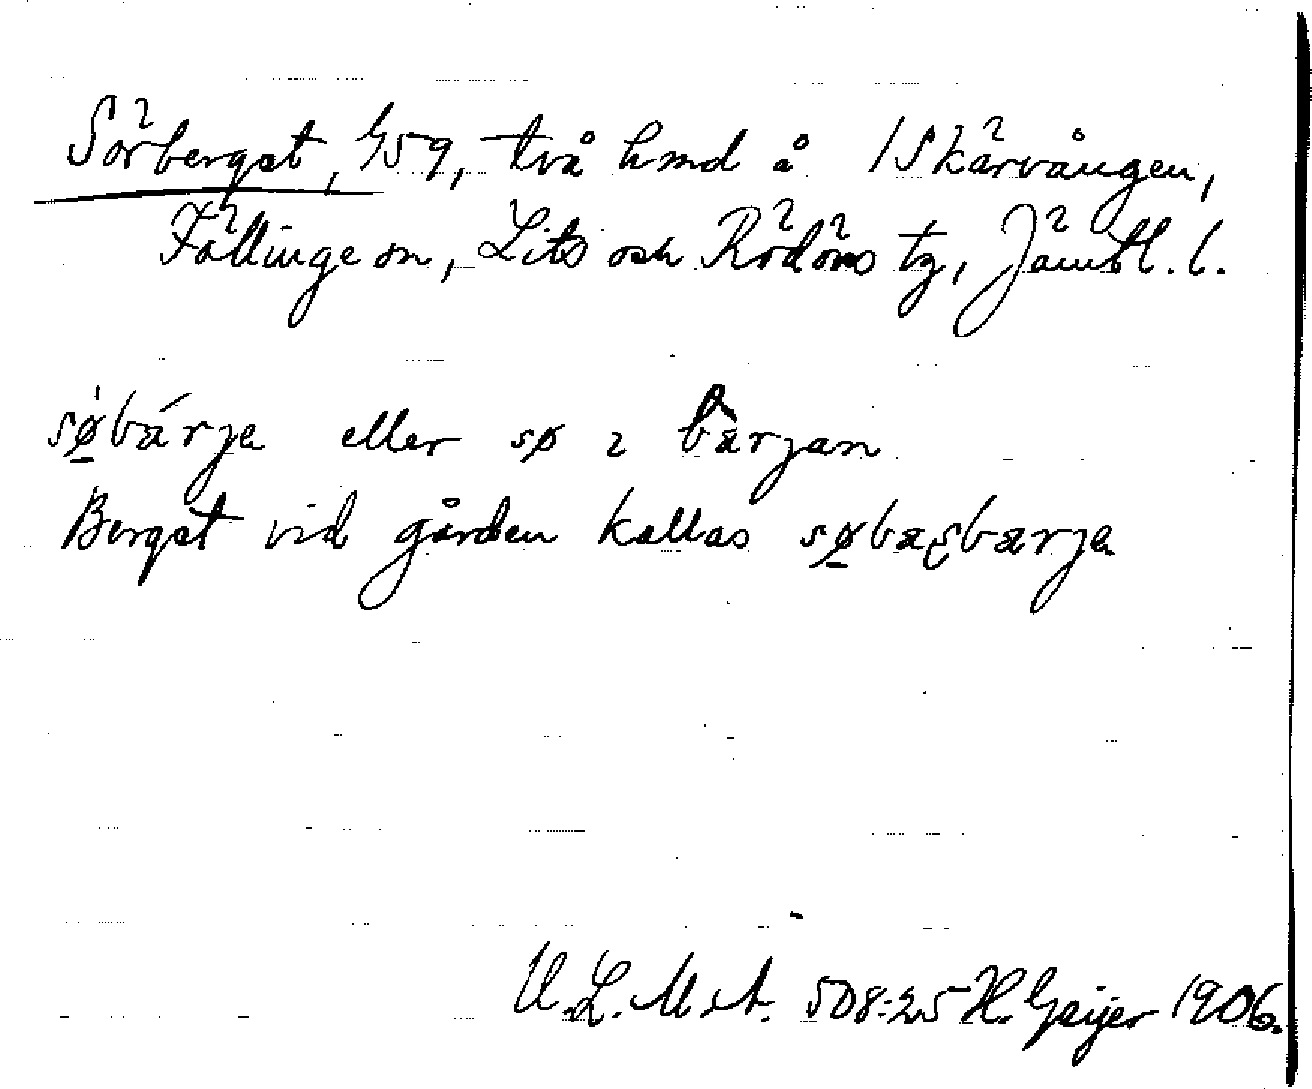 Sörberget, G59, två hmd å 1 Skärvången,
Föllinge sn, Lits och Rödöns tg, Jämtl. l.
sø̱bárje eller sø i bærjan
Berget vid gården kallas sø̱bæʂbærje
U.L.M.A. 508:25 H. Geijer 1906.